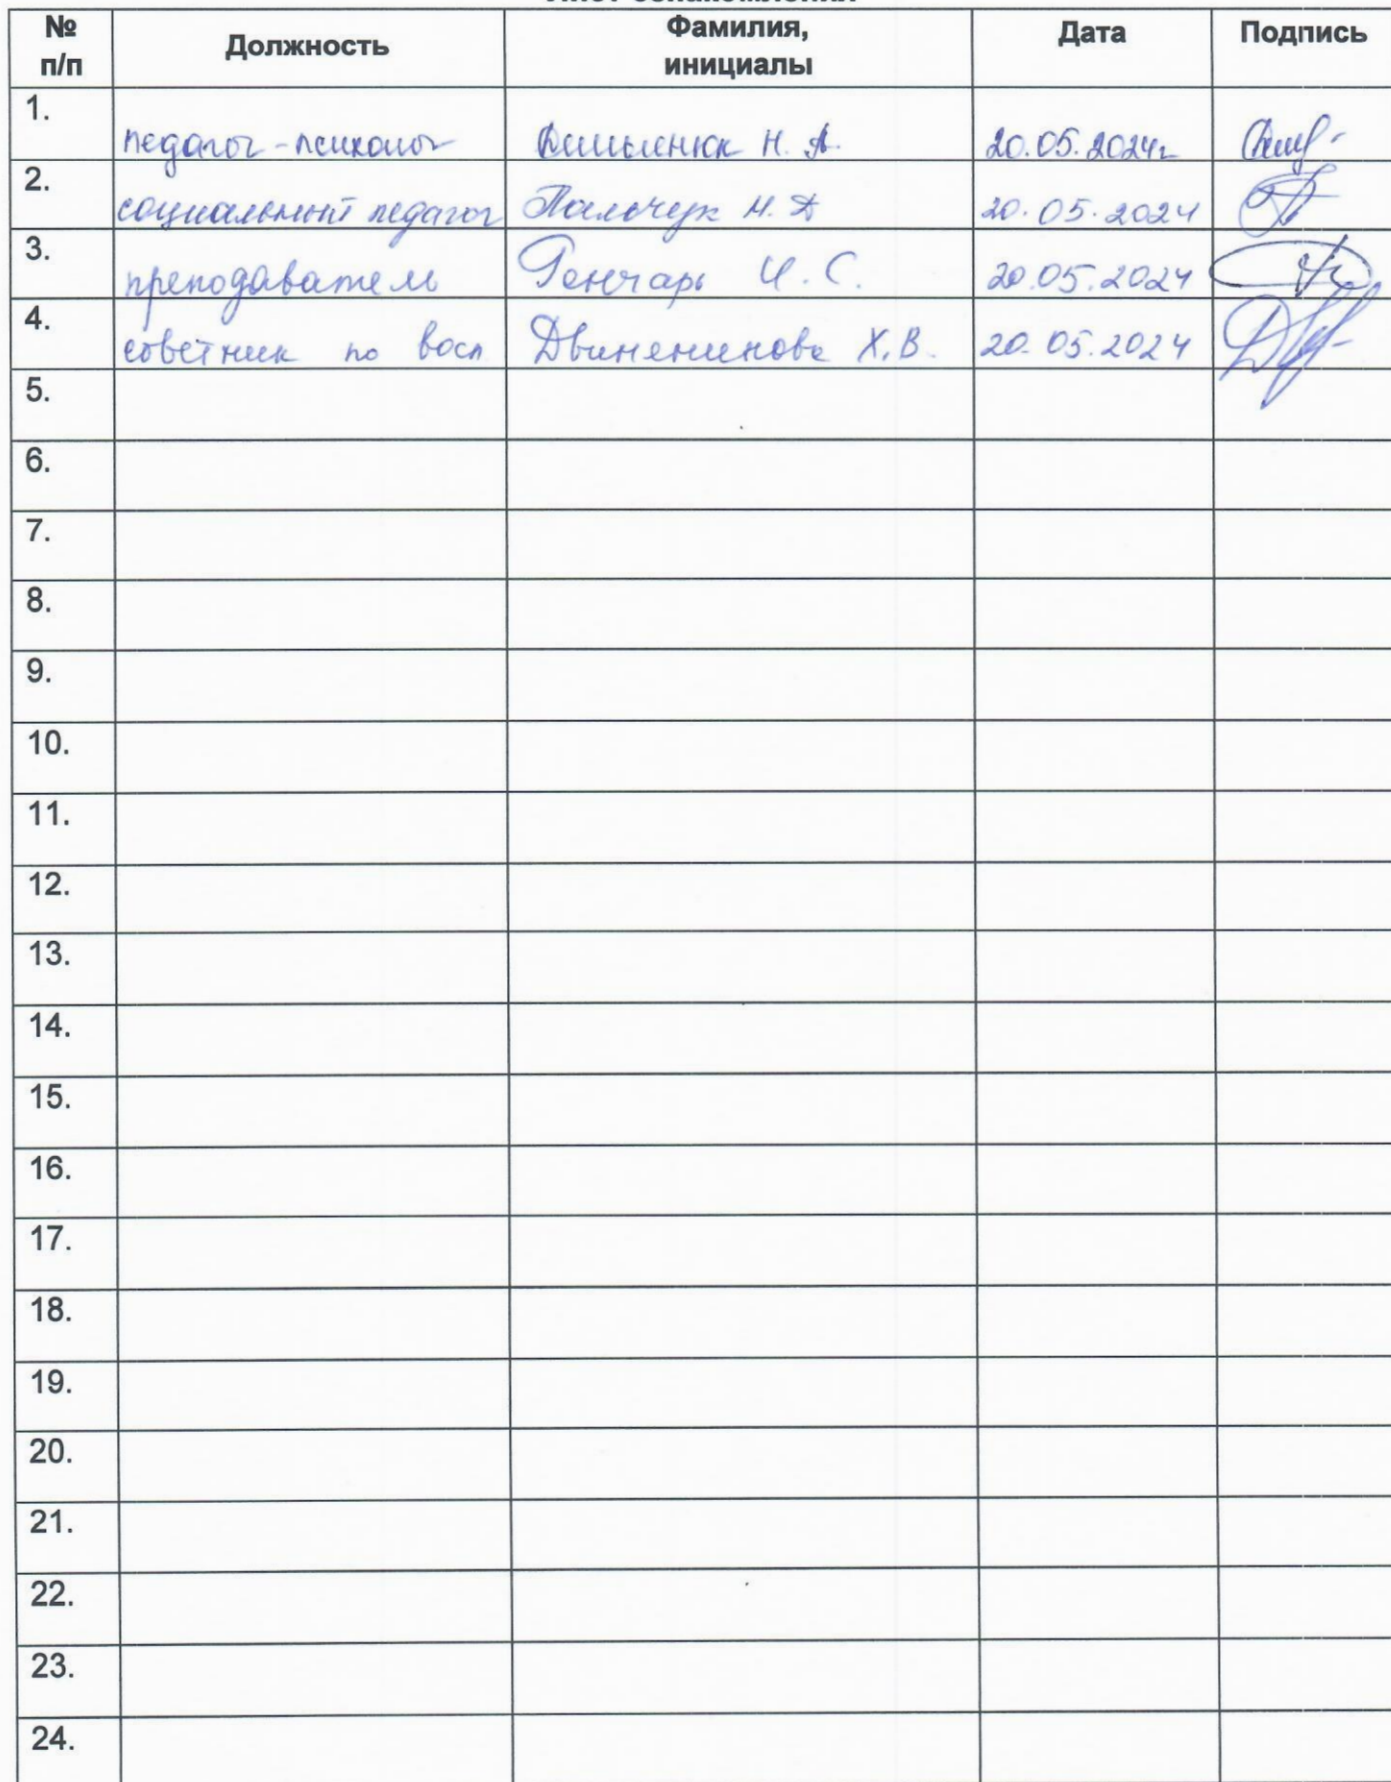 № п/п Должность Фамилия, инициалы Дата Подпись
1. педагог-психолог Н. А. 20.05.2024г
2. социальный педагог Пальчук Н. Д 20.05.2024
3. преподаватель Гончарь И. С. 20.05.2024
4. советник по восп Х.В. 20.05.2024
5.
6.
7.
8.
9.
10.
11.
12.
13.
14.
15.
16.
17.
18.
19.
20.
21.
22.
23.
24.